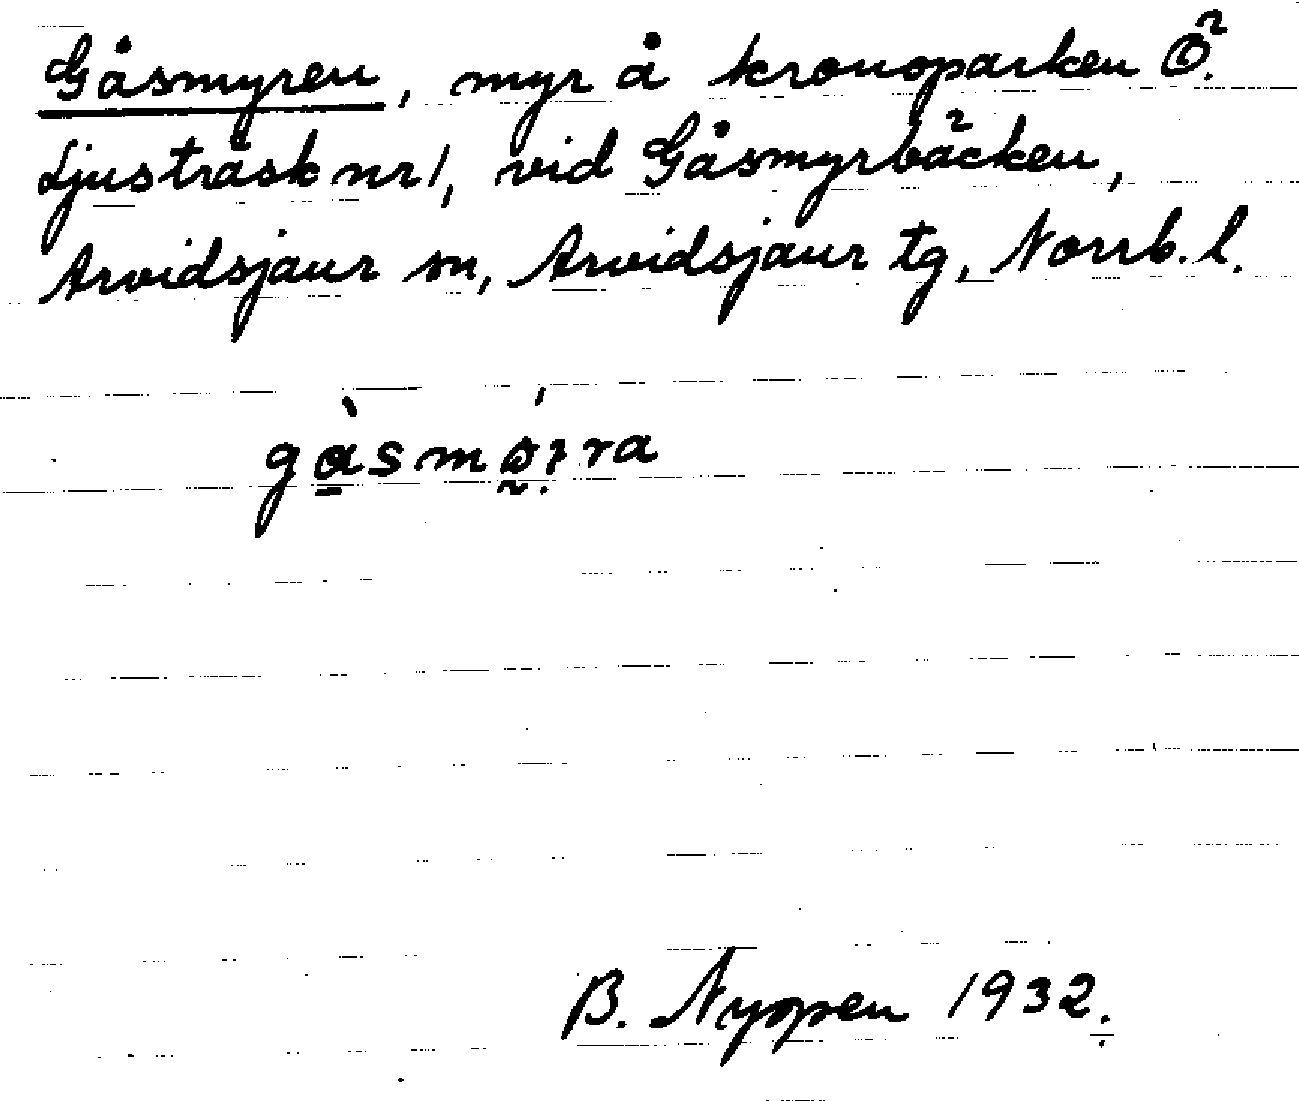 Gåsmyren, myr å kronoparken Ö.
Ljusträsk nr 1, vid Gåsmyrbäcken,
Arvidsjaur sn, Arvidsjaur tg, Norrb. l.
B. Nyppen 1932.